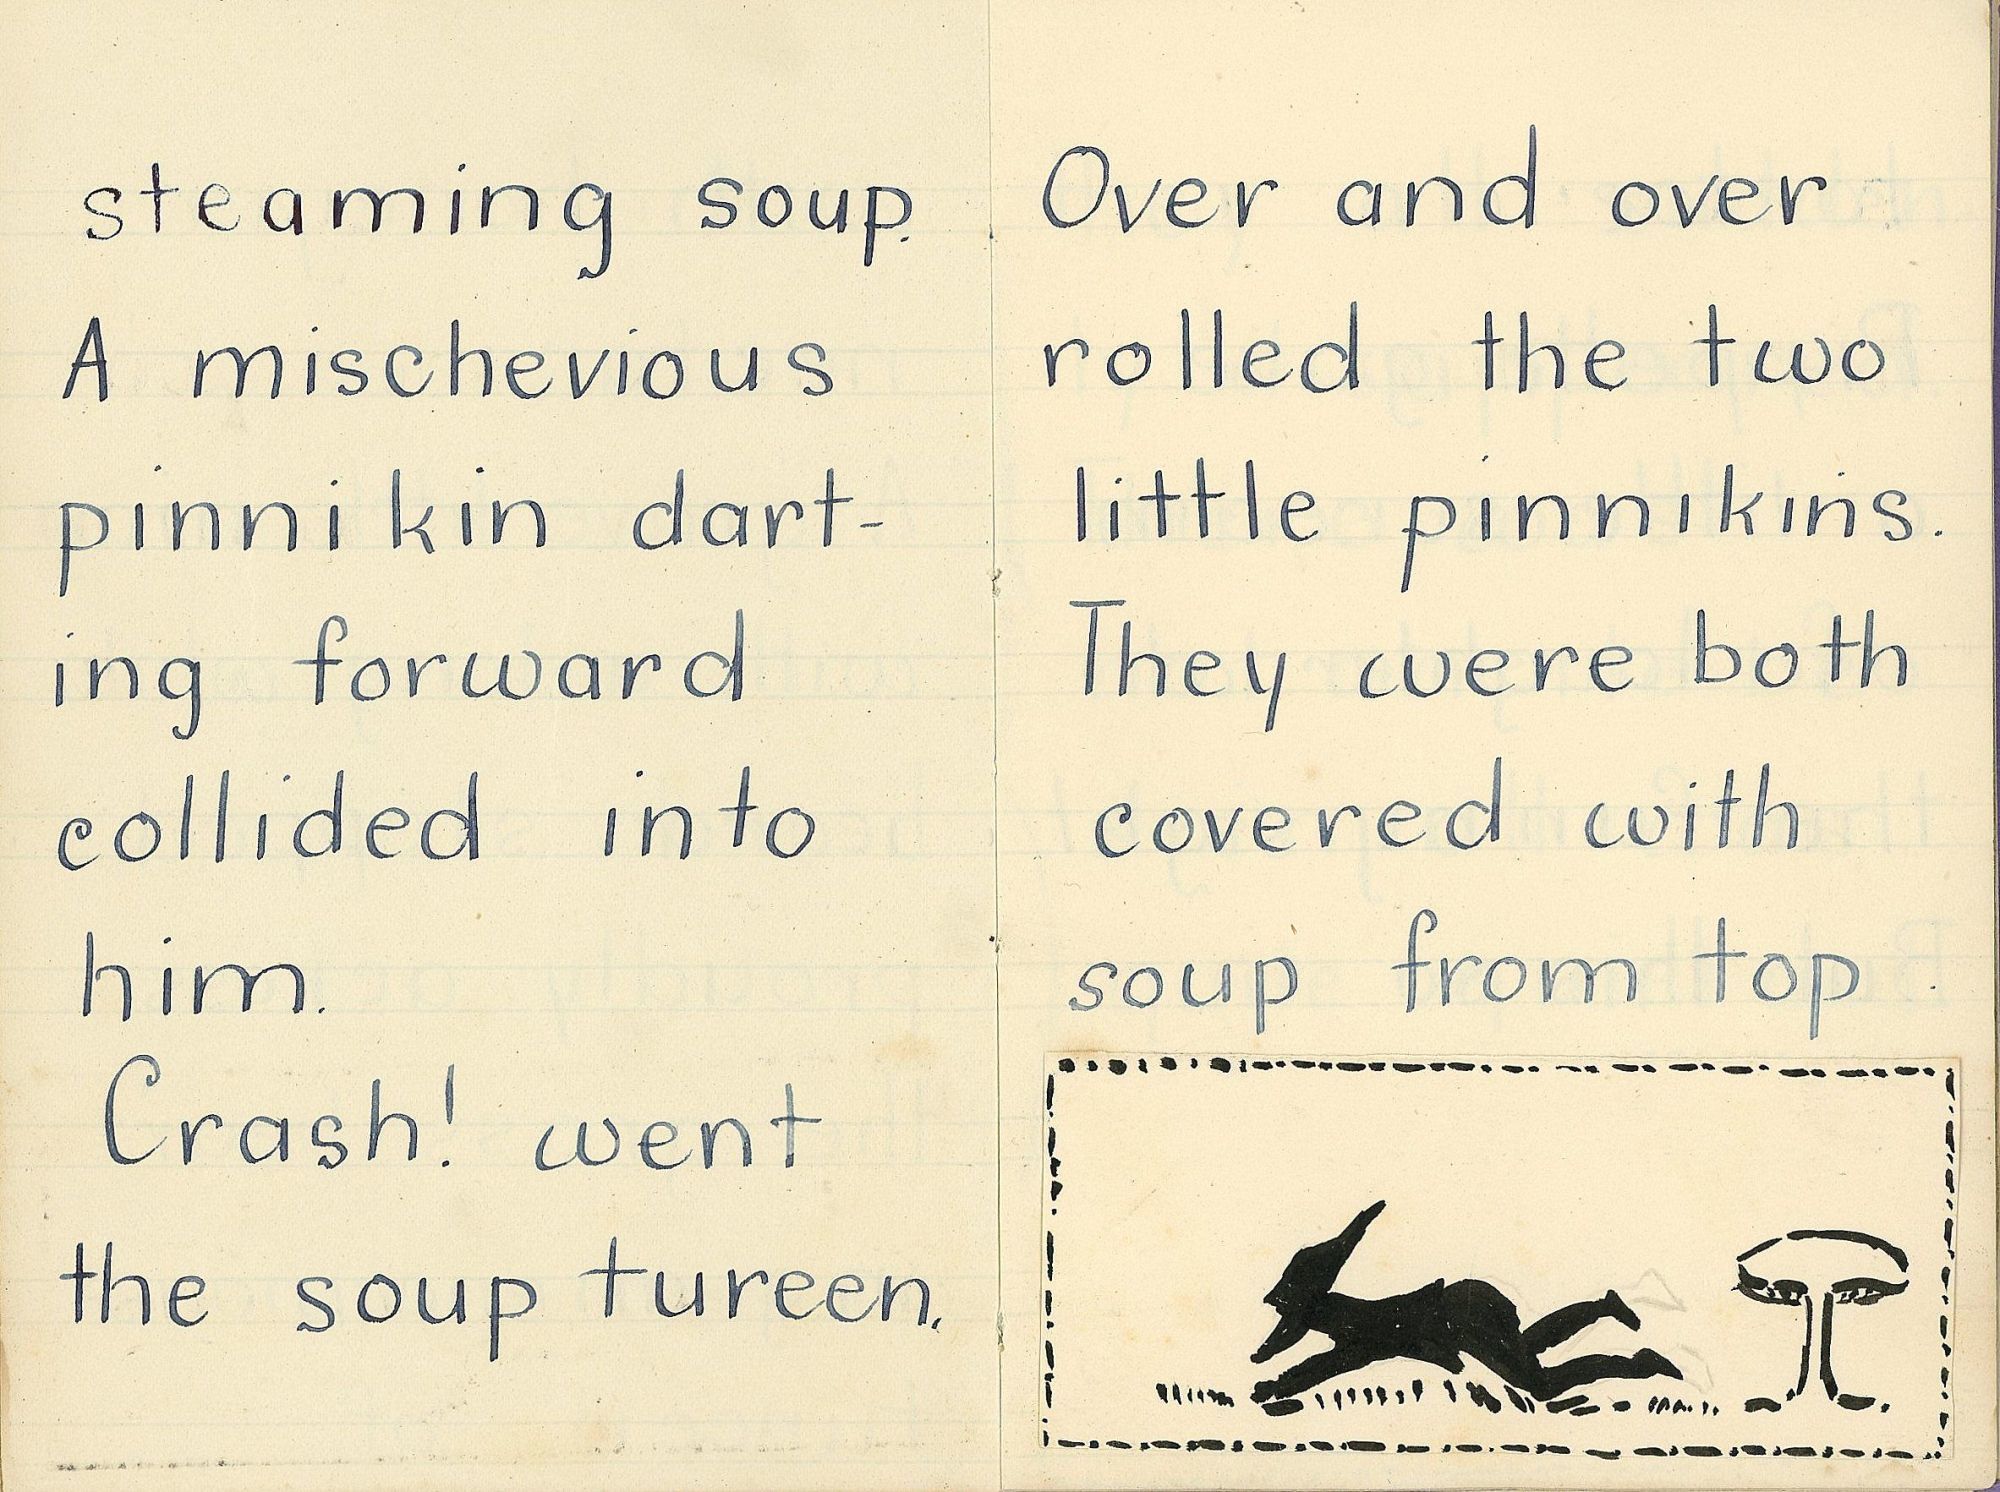 steaming soup.
A mischevious
pinnikin dart-
ing forward
collided into
him.
Crash! went
the soup tureen.
Over and over
rolled the two
little pinnikins.
They were both
covered with
soup from top